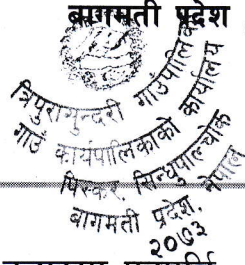 बागमती प्रदेश
त्रिपुरासुन्दरी गाउँपालिका
गाउँ कार्यपालिकाको कार्यालय
पिस्कर, सिन्धुपाल्चोक
बागमती प्रदेश, नेपाल
२०७३